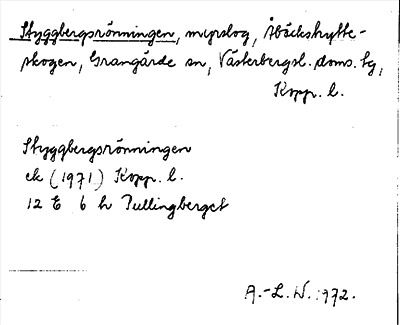 Styggbergsrönningen, myrslog, Åbäckshytte-
skogen, Grangärde sn, Västerbergsl. doms. tg,
Kopp. l.
Styggbergsrönningen
ek (1971) Kopp. l.
12 E 6 h Tullingberget
A.-L. W. 1972.